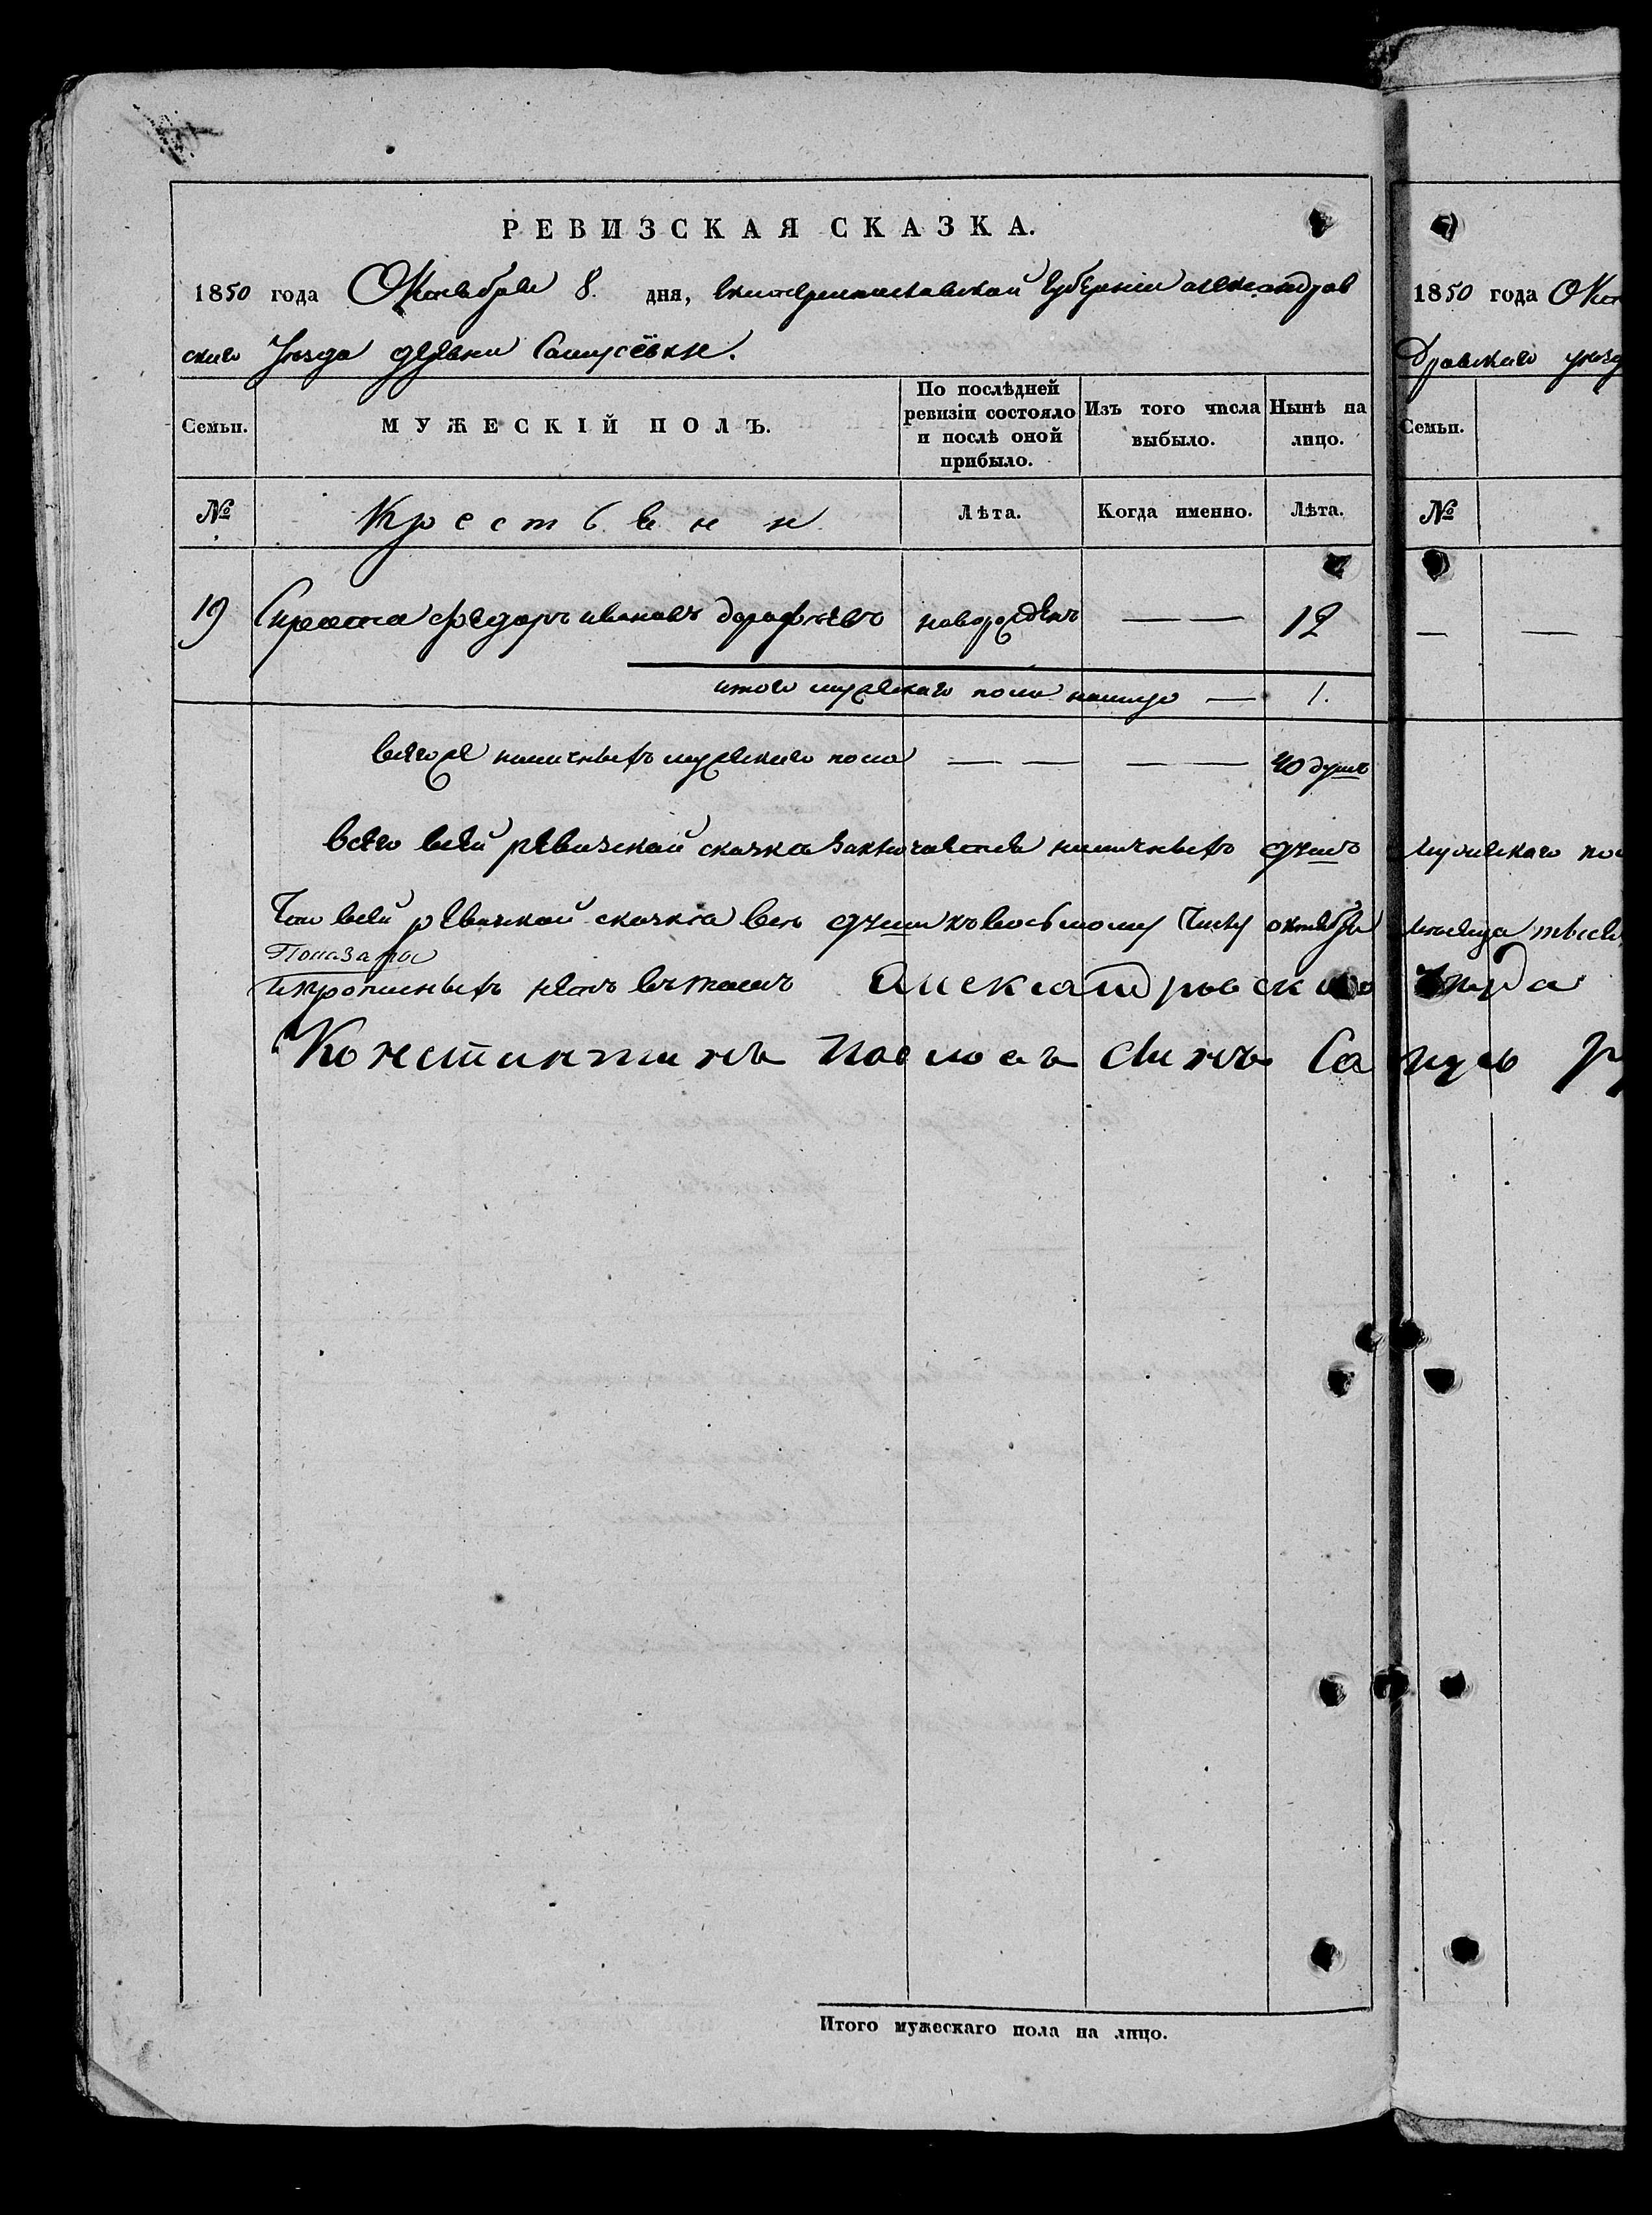 РЕВИЗСКАЯ СКАЗКА.
1850 года Октября 8. дня, екатеринославской губерніи александров
скаго уезда деревни Самусёвки.
Семьи.
МУЖЕСКІЙ ПОЛЪ.
По послѣдней ревизіи состояло и послѣ оной прибыло.
Изъ того числа выбыло.
Нынѣ на лицо.
№
Крестьяни
Лѣта.
Когда именно.
Лѣта.
19 Сирота федоръ ивановъ дорофеевъ новорожденъ — — 12
итого мужескаго пола налицо — 1.
всегоже наличныхъ мужескаго пола — — — — 40 душъ
всего всей ревизской сказки заключается наличныхъ душъ мужескаго по
Что всей ревизской сказки все души къ восьмому числу октября месяца тысе
Показаны
ипрописныхъ нетъ въ томъ Александровскаго уезда
Констинтинъ Павловъ сынъ Самусь
Итого мужескаго пола на лицо.
1850 года Окт
дровскаго уезд
Семьи.
№
— —